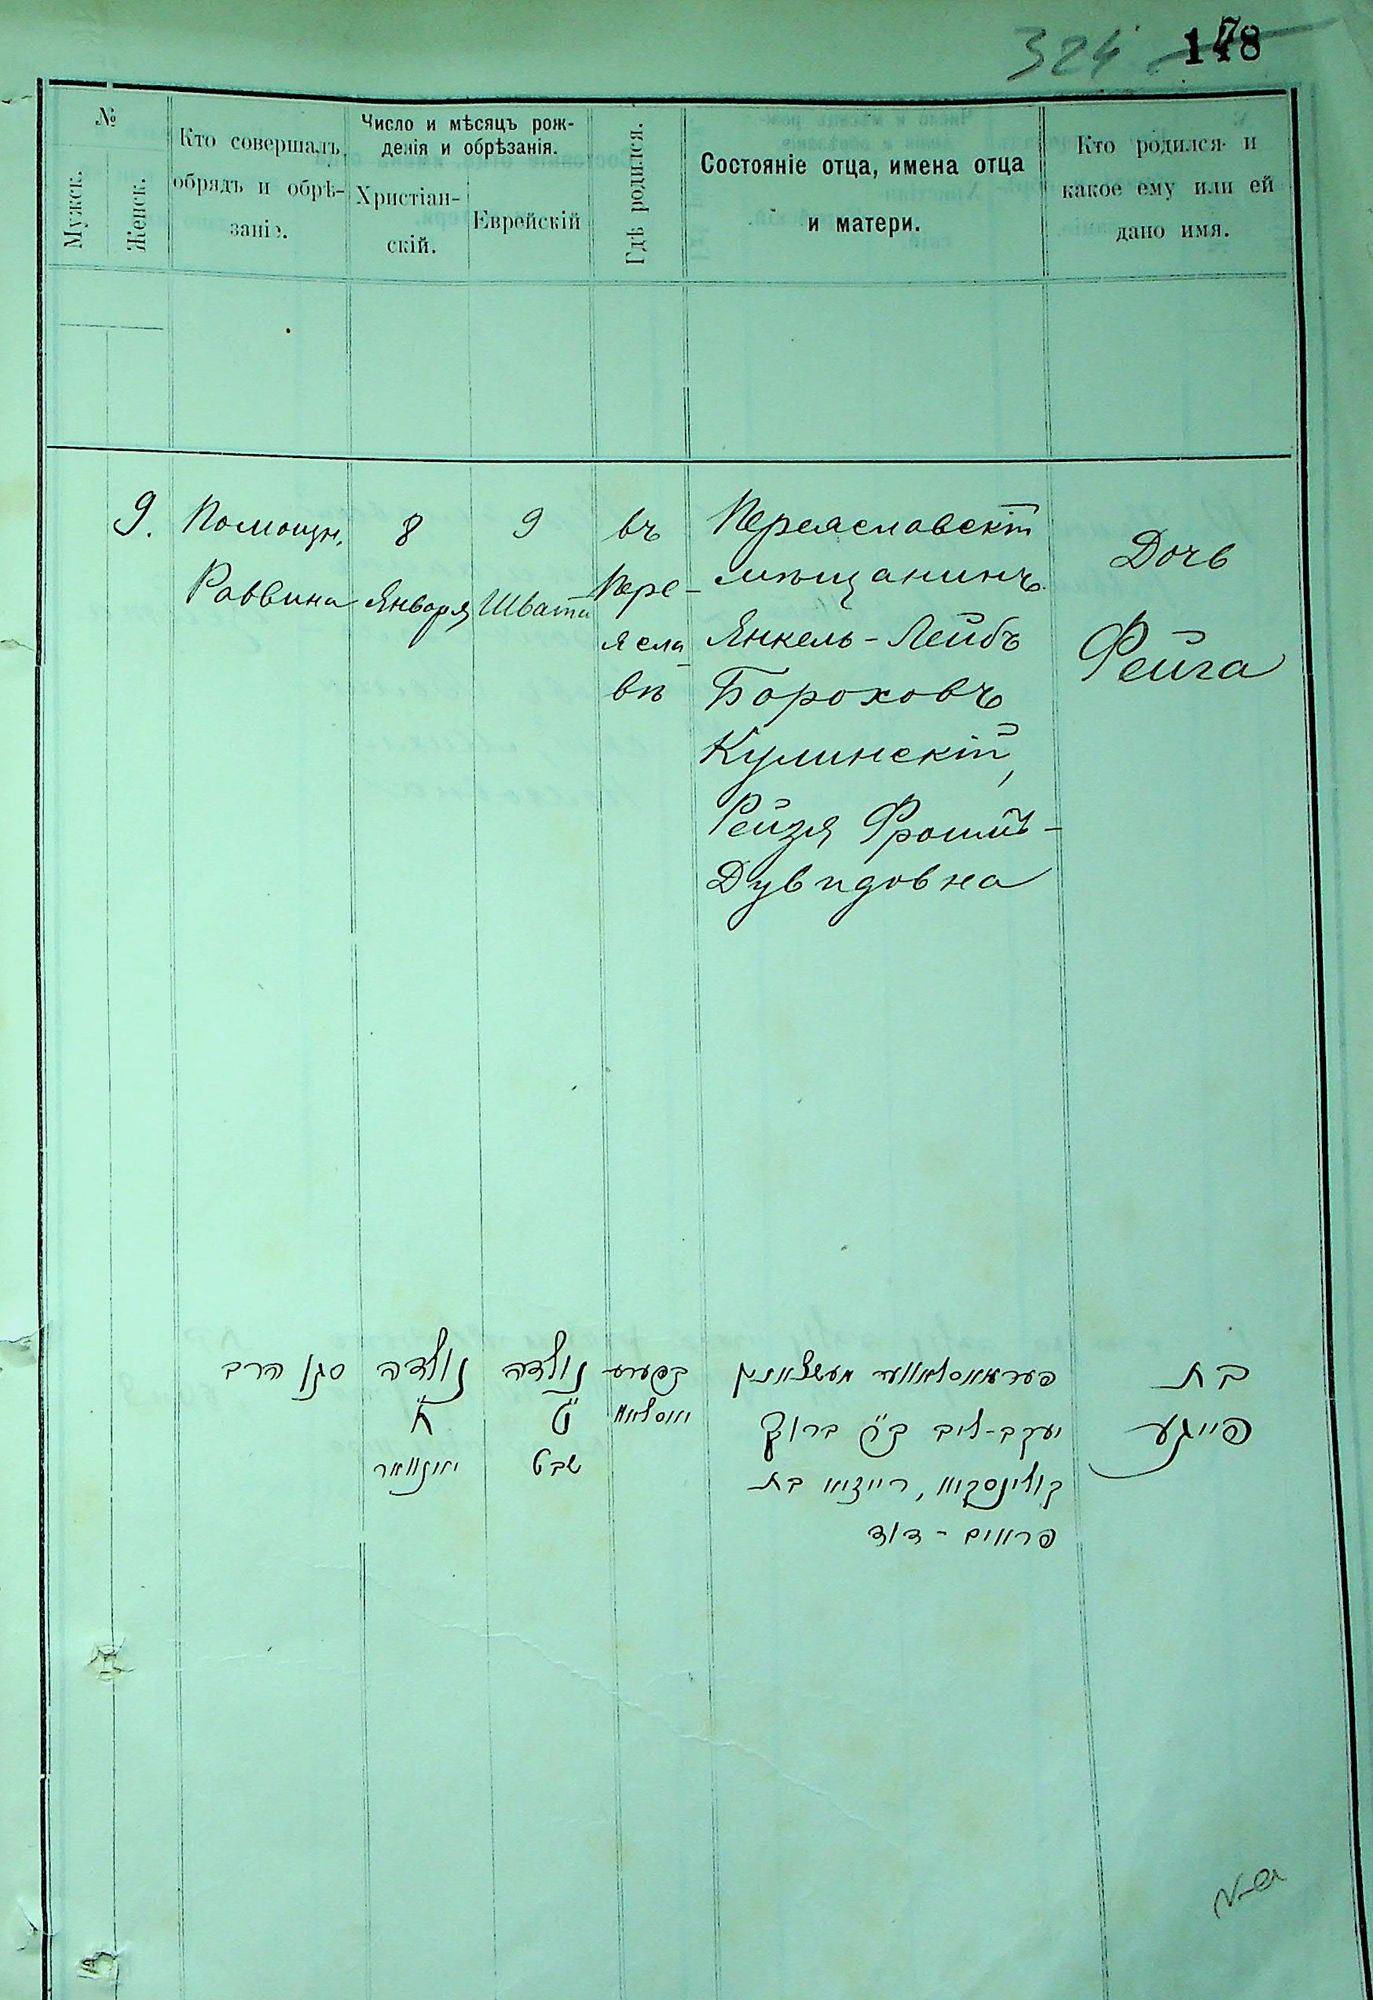 324
178
№
Мужск.
Женск.
Кто совершалъ
обрядъ и обрѣ-
заніе.
Число и мѣсяцъ рож-
денія и обрѣзанія.
Христіан-
скій.
Еврейскій
Гдѣ родился.
Состояніе отца, имена отца
и матери.
Кто родился и
какое ему или ей
дано имя.
9.
Помощн.
Раввина
8
Января
9
Швата
въ
Пере-
ясла-
вѣ
Переяславскій
мѣщанинъ
Янкель-Лейбъ
Бороховъ
Кулинскій,
Рейзя Фроимъ-
Дувидовна
Дочь
Фейга
סגן הרב
נולדה
ח
יאנוואר
נולדה
ט
שבט
בפערע
יאסלאוו
פערעיאסלאווער מעשצאנין
יעקב-ליב ב״ר ברוך
קולינסקי, רייזיא בת
פרוים - דוד
בת
פייגע